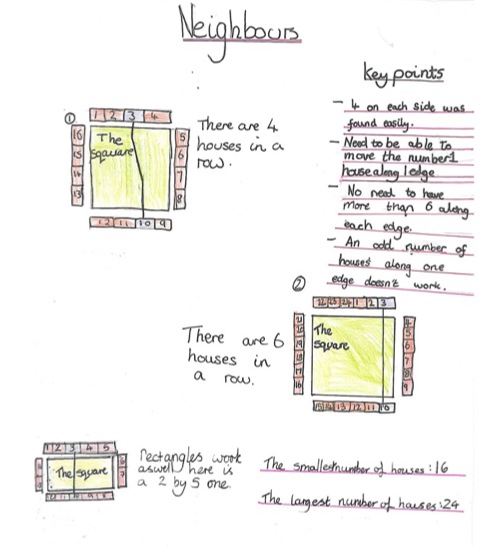 Neighbours
key points
- 4 on each side was
found easily.
- Need to be able to
move the number 1
house along 1 edge
- No need to have
more than 6 along
each edge.
- An odd number of
houses along one
edge doesn't work.
①
1 2 3 4
16 15 14 13
The
square
5 6 7 8
12 11 10 9
There are 4
houses in a
row.
②
22 23 24 1 2 3
The
square
15 14 13 12 11 10
There are 6
houses in
a row.
1 2 3 4 5
The square
rectangles work
aswell here is
a 2 by 5 one.
The smallest number of houses: 16
The largest number of houses: 24